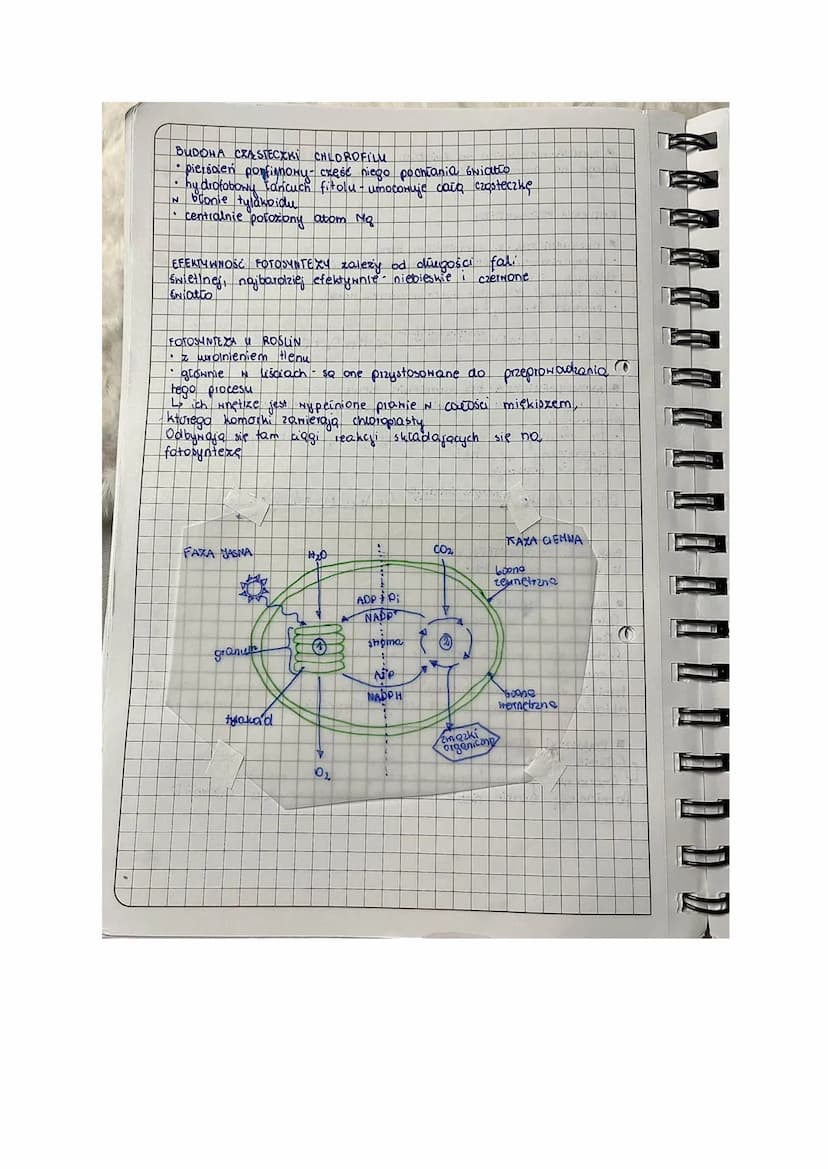 BUDOWA CZĄSTECZKI CHLOROFILU
• pierścień porfirynowy - część niego pochłania światło
• hydrofobowy łańcuch fitolu - umocowuje całą cząsteczkę
w błonie tylakoidu
• centralnie położony atom Mg
EFEKTYWNOŚĆ FOTOSYNTEZY zależy od długości fali
świetlnej, najbardziej efektywnie - niebieskie i czerwone
światło
FOTOSYNTEZA U ROŚLIN
• z uwolnieniem tlenu
• głównie w liściach - są one przystosowane do przeprowadzania
tego procesu
↳ ich wnętrze jest wypełnione prawie w całości miękiszem,
którego komórki zawierają chloroplasty
Odbywają się tam ciągi reakcji składających się na
fotosyntezę
FAZA JASNA
H₂O
CO₂
FAZA CIEMNA
błona
zewnętrzna
ADP + Pi
NADP⁺
granum
1
stroma
2
ATP
NADPH
błona
wewnętrzna
tylakoid
związki
organiczne
O₂